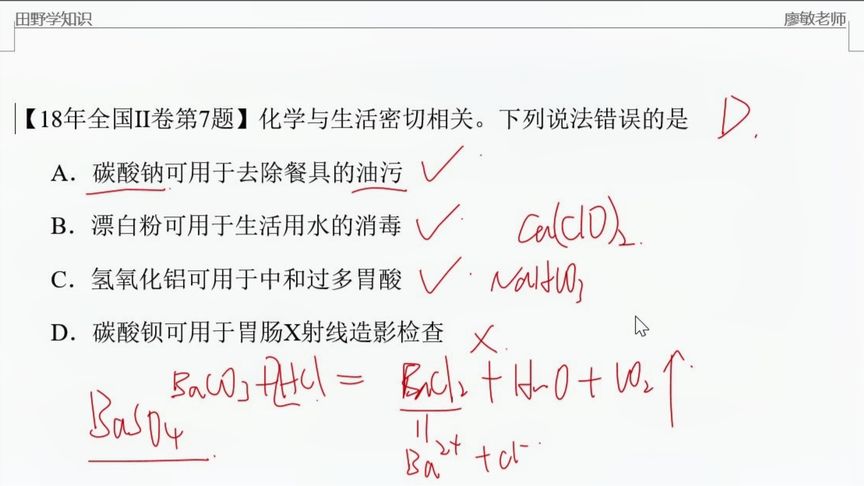 田野学知识
廖敏老师
【18年全国II卷第7题】化学与生活密切相关。下列说法错误的是 D.
A. 碳酸钠可用于去除餐具的油污 ✓
B. 漂白粉可用于生活用水的消毒 ✓ Ca(ClO)₂.
C. 氢氧化铝可用于中和过多胃酸 ✓ NaHCO₃
D. 碳酸钡可用于胃肠X射线造影检查 ×
BaCO₃+2HCl = BaCl₂ + H₂O + CO₂↑
BaSO₄
Ba²⁺ + Cl⁻